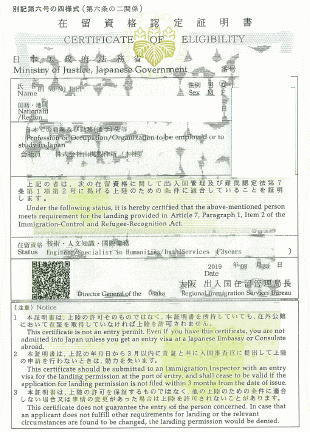 別記第六号の四様式(第六条の二関係)
在留資格認定証明書
CERTIFICATE OF ELIGIBILITY
日本国政府法務省
Ministry of Justice, Japanese Government
番号
氏名
Name
性別
Sex
国籍・地
Nationality
/Region
日本での
Profession or Occupation/Organization to be employed or to
study in Japan
会社員
上記の者は、次の在留資格に関して出入国管理及び難民認定法第7
条第1項第2号に掲げる上陸のための条件に適合していることを証明
します。
Under the following status, it is hereby certified that the above-mentioned person
meets requirement for the landing provided in Article 7, Paragraph 1, Item 2 of the
Immigration-Control and Refugee-Recognition Act.
在留資格 技術・人文知識・国際業務
Status Engineer/Specialist in Humanities/Int'l Services (3years)
2019 年 月 日
大阪 出入国在留管理局長
Director General of the Osaka Regional Immigration Services Bureau
(注意) Notice
1 本証明書は、上陸の許可そのものではなく、本証明書を所持していても、在外公館
において査証を取得していなければ上陸を許可されません。
This certificate is not an entry permit. Even if you have this certificate, you are not
admitted into Japan unless you get an entry visa at a Japanese Embassy or Consulate
abroad.
2 本証明書は、上記の年月日から3月以内に査証と共に入国審査官に提出して上陸
の申請を行わないときは、効力を失います。
This certificate should be submitted to an Immigration Inspector with an entry
visa for the landing permission at the port of entry, and shall cease to be valid if the
application for landing permission is not filed within 3 months from the date of issue.
3 本証明書は、上陸の許可を保証するものではなく、他の上陸のための条件に適合し
ない場合又は事情の変更があった場合は上陸を許可されないことがあります。
This certificate does not guarantee the entry of the person concerned. In case that
an applicant does not fulfill other requirements for landing or the relevant
circumstances are found to be changed, the landing permission would be denied.